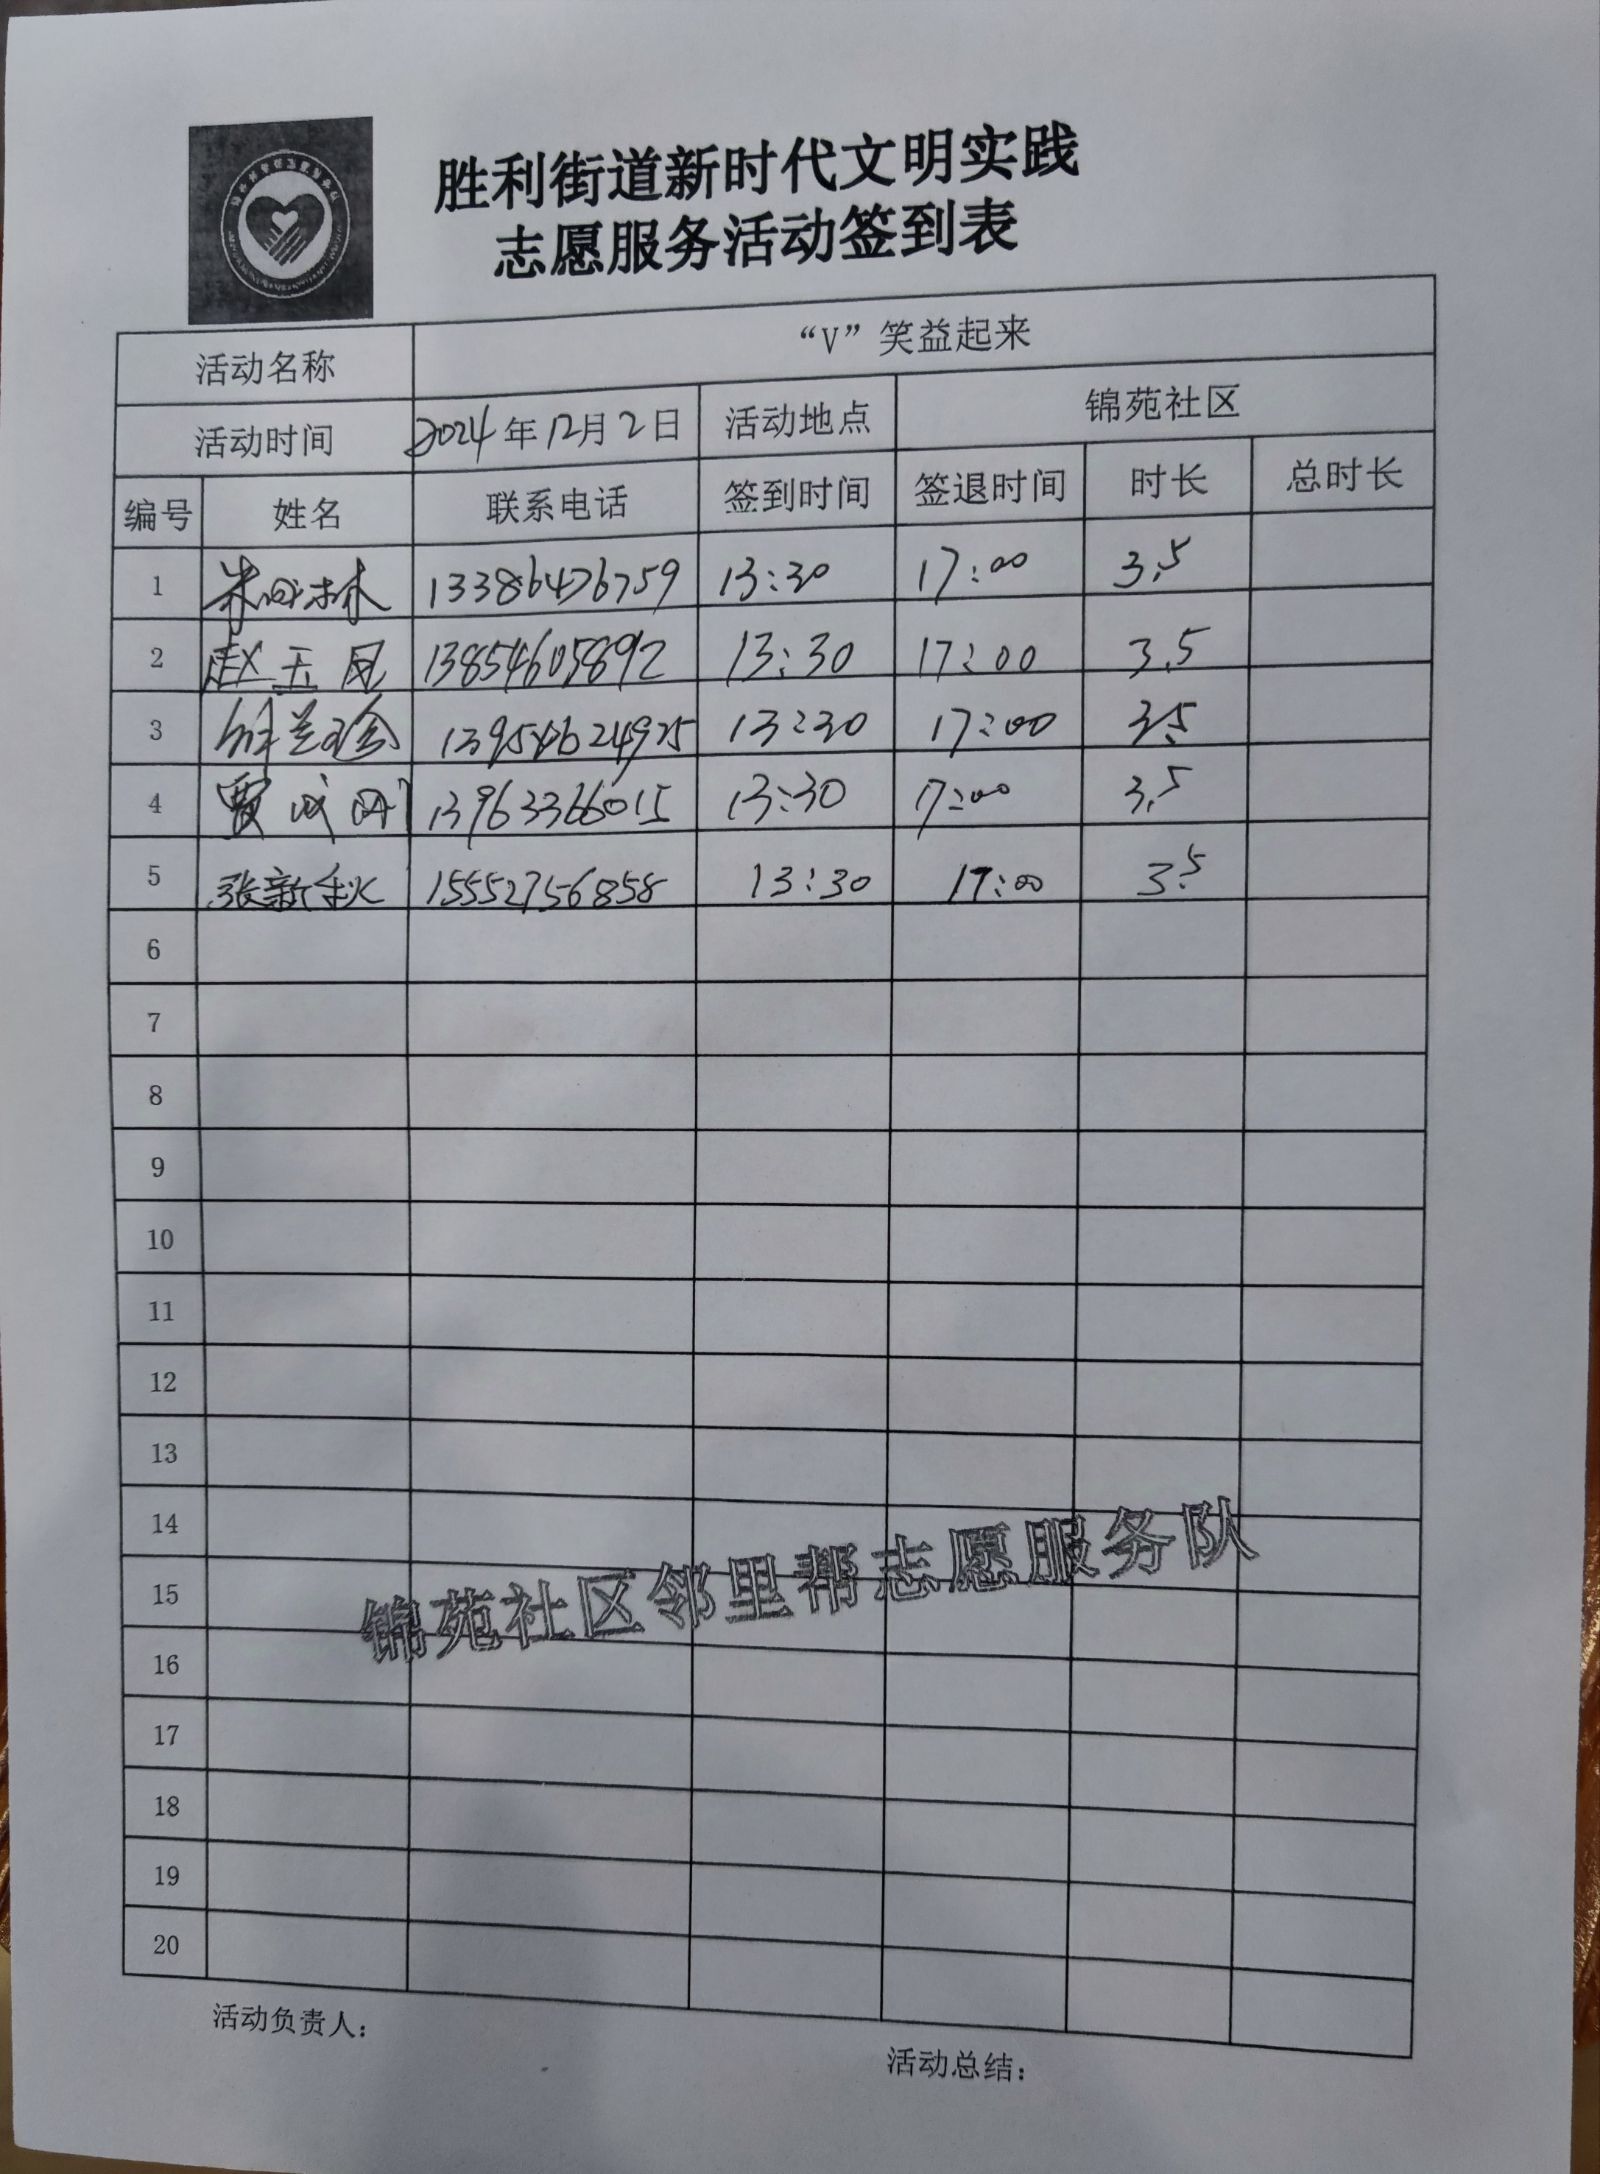 胜利街道新时代文明实践
志愿服务活动签到表
活动名称 “V”笑益起来
活动时间 2024年12月2日 活动地点 锦苑社区
编号 姓名 联系电话 签到时间 签退时间 时长 总时长
1 13386476759 13:30 17:00 3.5
2 赵玉凤 13854605892 13:30 17:00 3.5
3 13954624925 13:30 17:00 3.5
4 贾 13963366015 13:30 17:00 3.5
5 张新秋 15552756858 13:30 17:00 3.5
6
7
8
9
10
11
12
13
14
15
16
17
18
19
20
锦苑社区邻里帮志愿服务队
活动负责人：
活动总结：